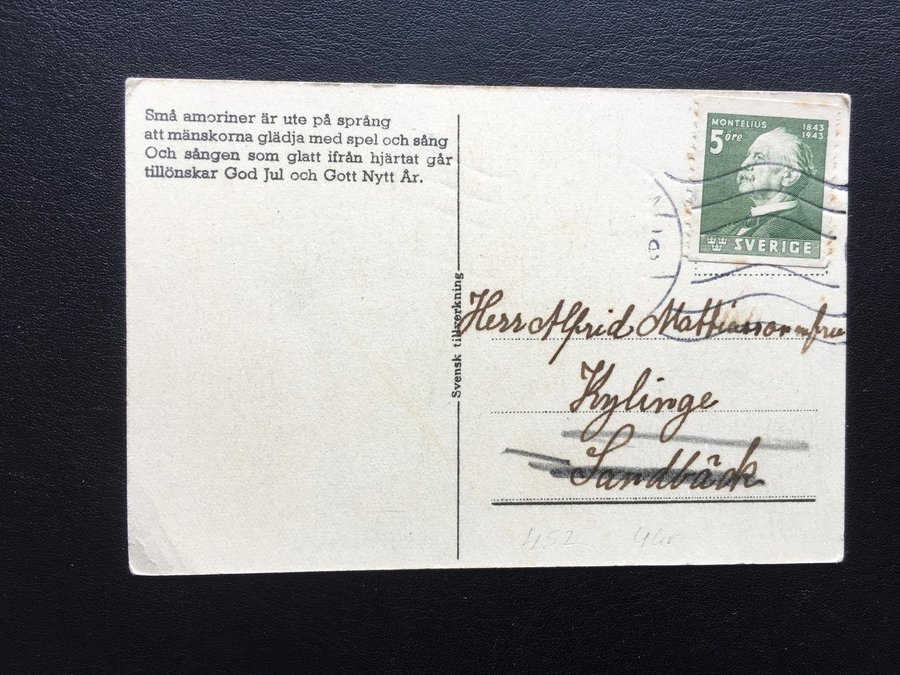 Små amoriner är ute på språng
att mänskorna glädja med spel och sång
Och sången som glatt ifrån hjärtat går
tillönskar God Jul och Gott Nytt År.
Svensk tillverkning
MONTELIUS 1843
1943
5 öre
SVERIGE
Herr Alfrid Mattiasson m fru
Kylinge
Sandbäck
452